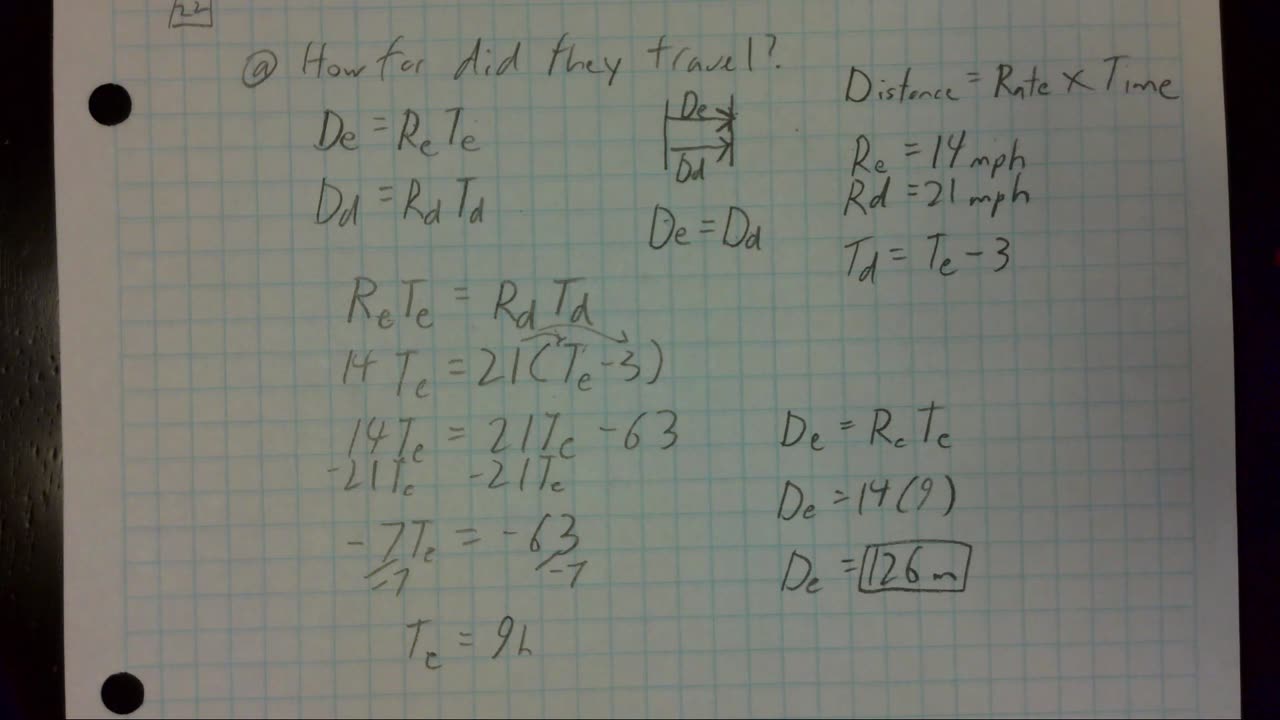 22
ⓐ How far did they travel?
De = Re Te
Dd = Rd Td
De
Dd
De = Dd
Distance = Rate x Time
Re = 14 mph
Rd = 21 mph
Td = Te - 3
Re Te = Rd Td
14 Te = 21(Te - 3)
14Te = 21Te - 63
-21Te -21Te
-7Te = -63
-7 -7
Te = 9h
De = Re Te
De = 14(9)
De = 126 m